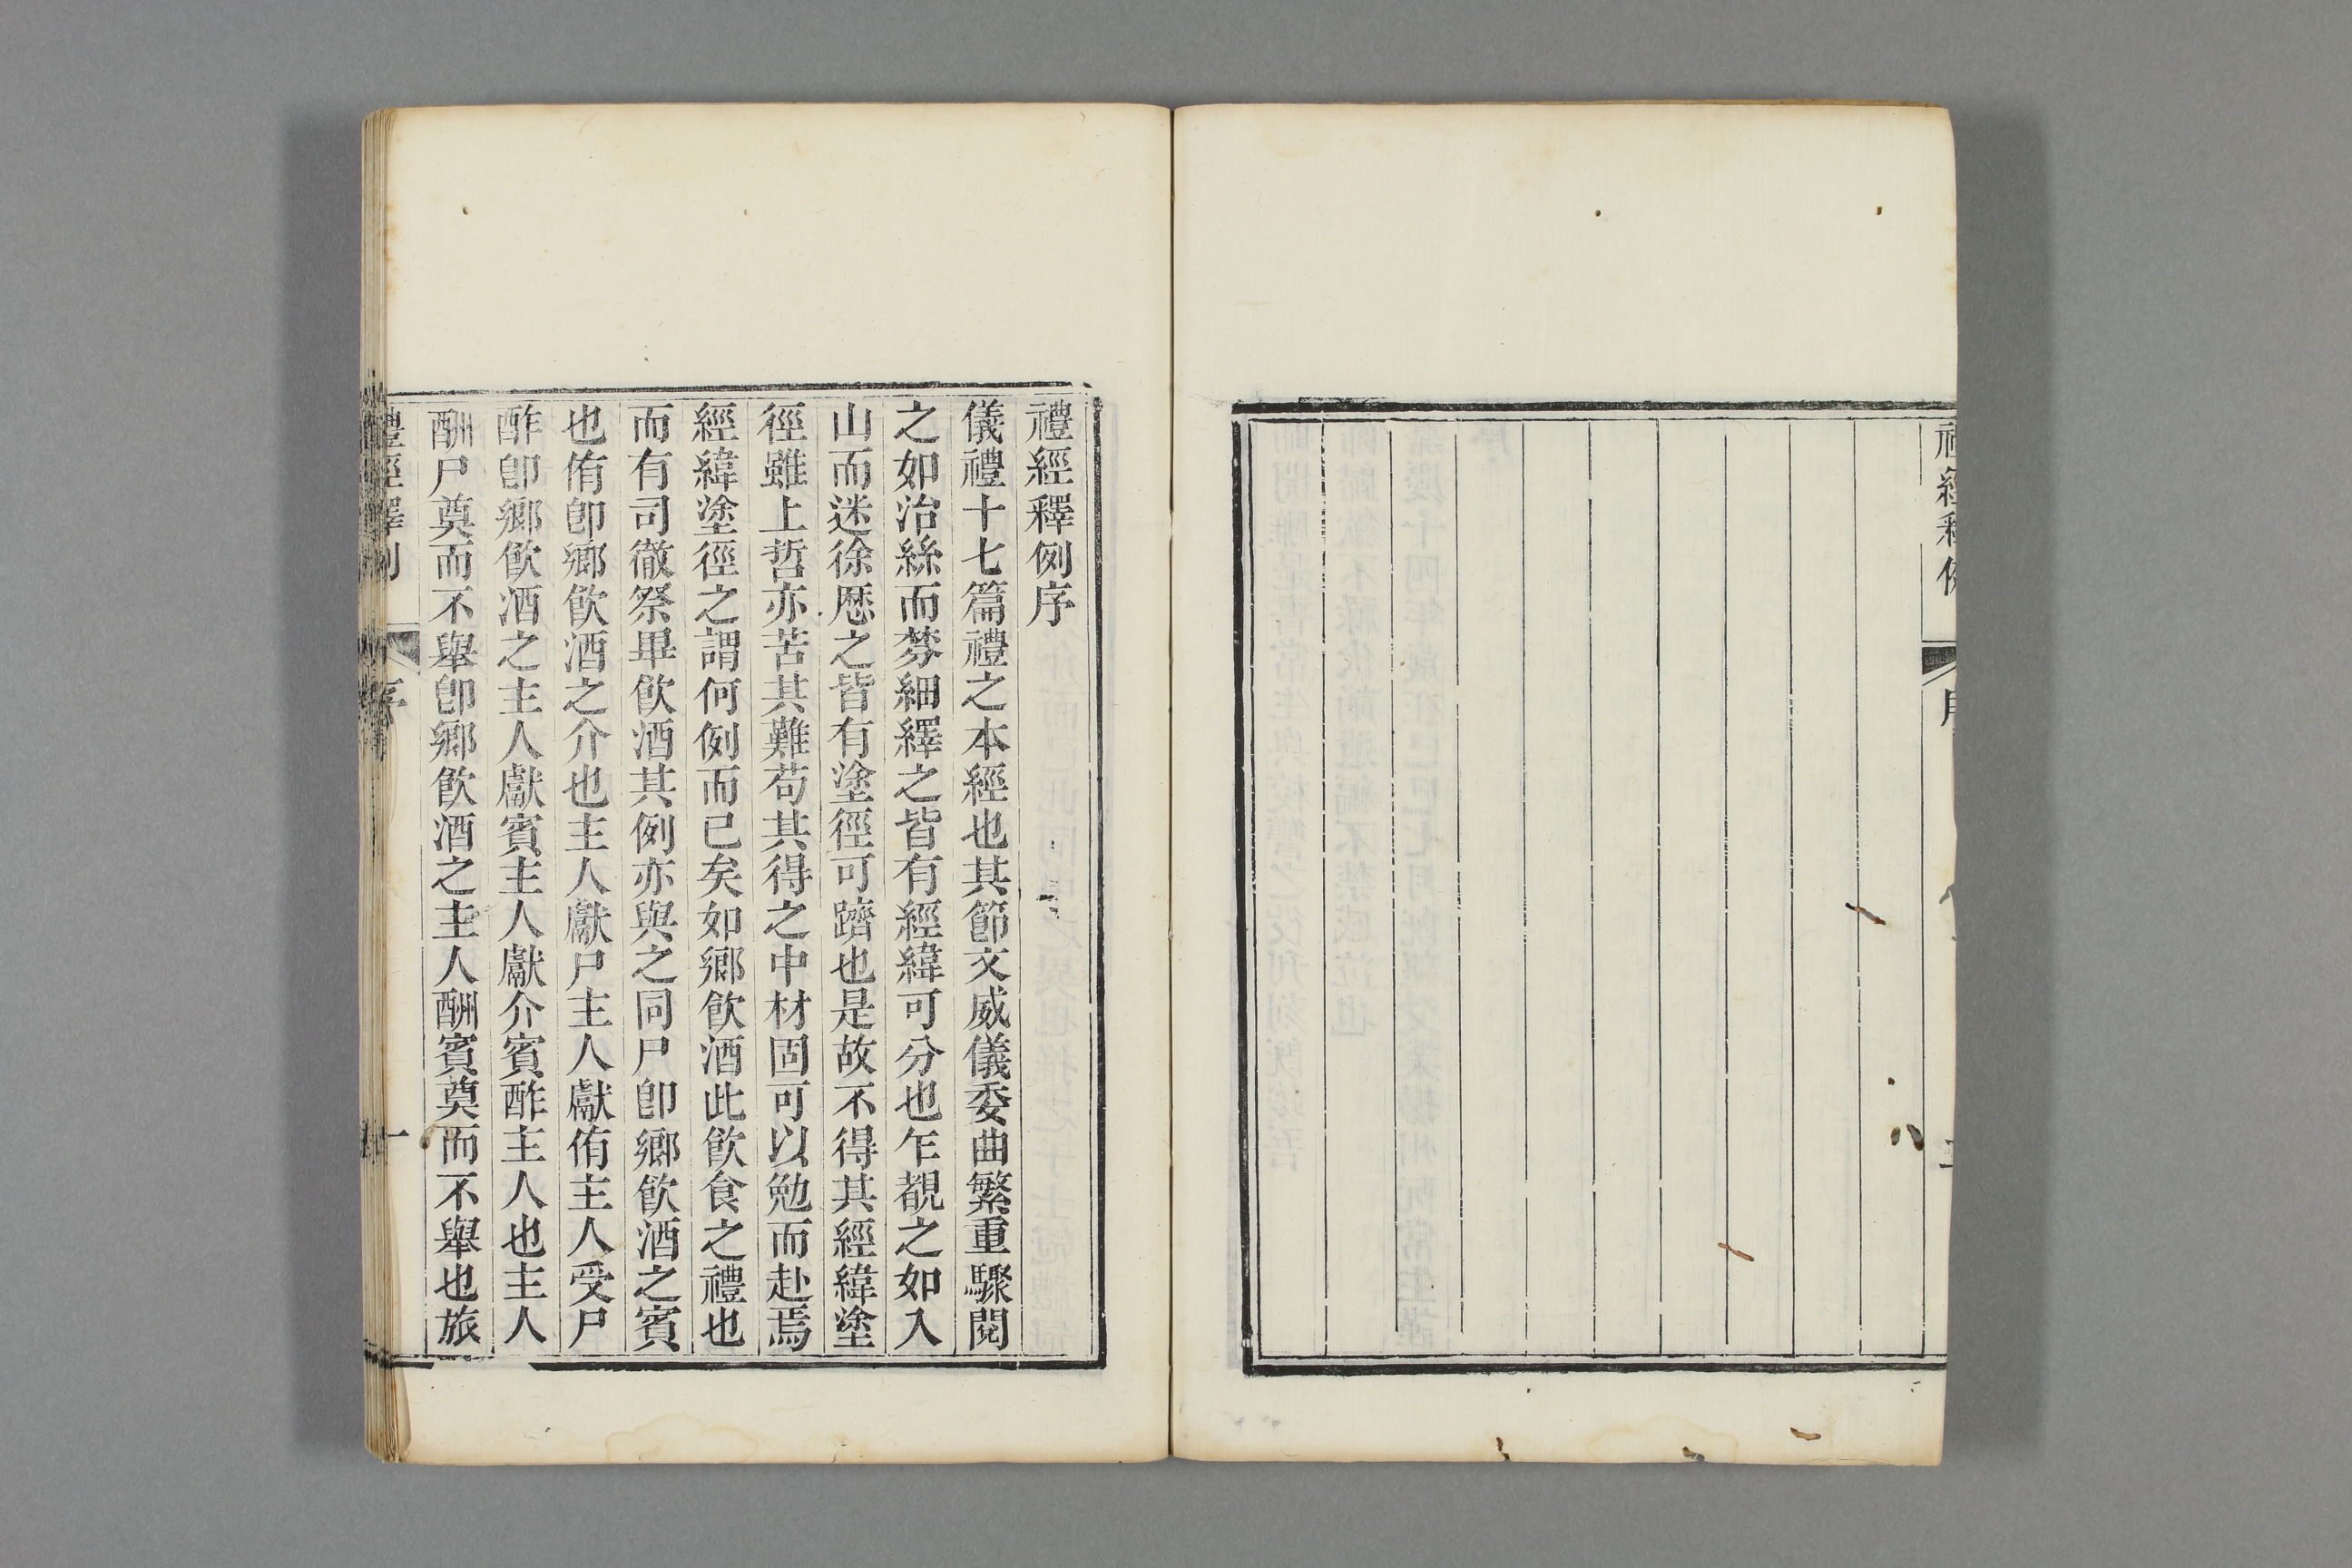 禮經釋例序
儀禮十七篇禮之本經也其節文威儀委曲繁重驟閱
之如治絲而棼細繹之皆有經緯可分也乍覩之如入
山而迷徐歷之皆有塗徑可躋也是故不得其經緯塗
徑雖上哲亦苦其難苟其得之中材固可以勉而赴焉
經緯塗徑之謂何例而已矣如鄉飮酒此飮食之禮也
而有司徹祭畢飮酒其例亦與之同尸卽鄉飮酒之賓
也侑卽鄉飮酒之介也主人獻尸主人獻侑主人受尸
酢卽鄉飮酒之主人獻賓主人獻介賓酢主人也主人
酬尸奠而不舉卽鄉飮酒之主人酬賓奠而不舉也旅
禮經釋例
序
一